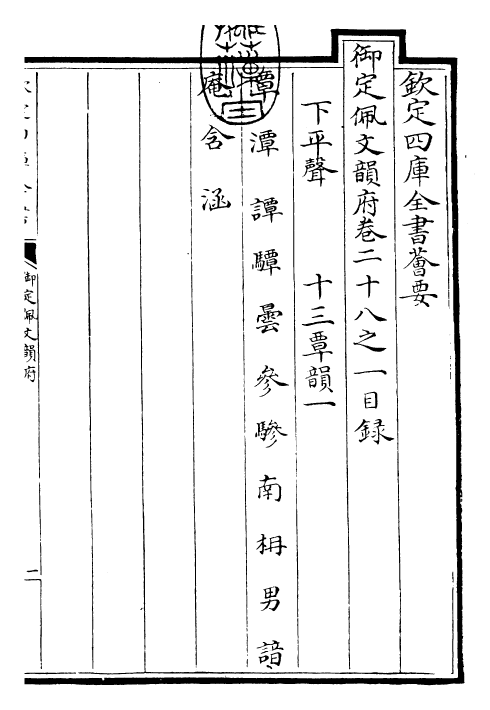 欽定四庫全書薈要
御定佩文韻府卷二十八之一目錄
下平聲　十三覃韻一
覃　潭　譚　驔　曇　參　驂　南　枏　男　諳
庵　含　涵
御定佩文韻府
一